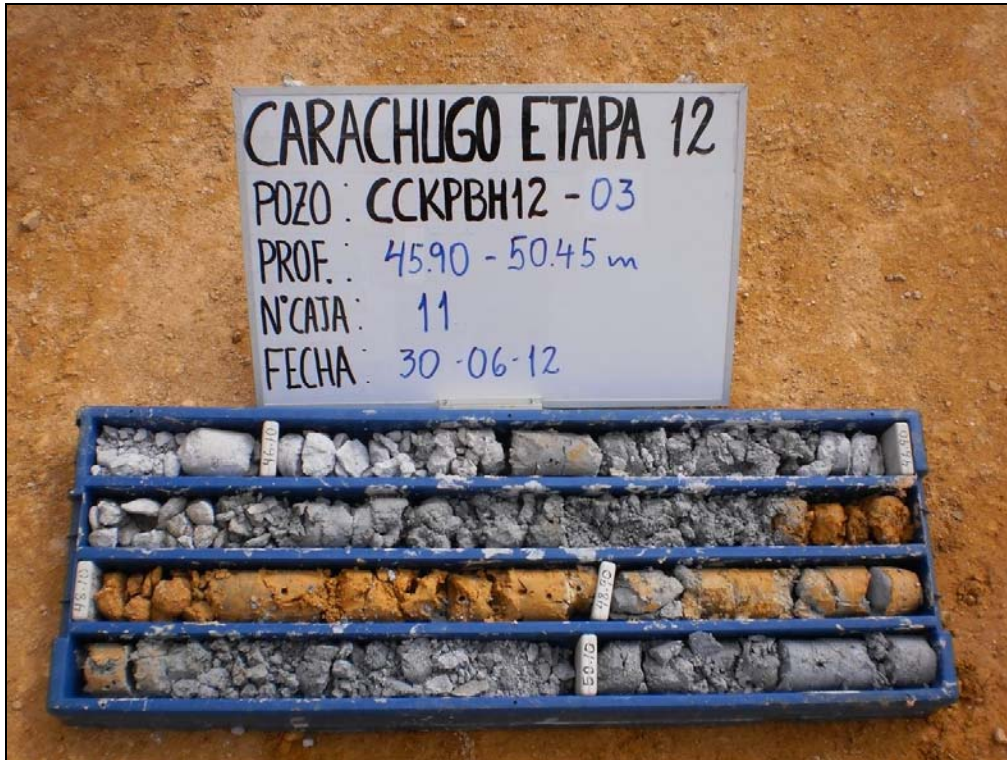 CARACHUGO ETAPA 12
POZO: CCKPBH12-03
PROF.: 45.90-50.45m
N°CAJA: 11
FECHA: 30-06-12
46.10
48.10
48.90
50.10